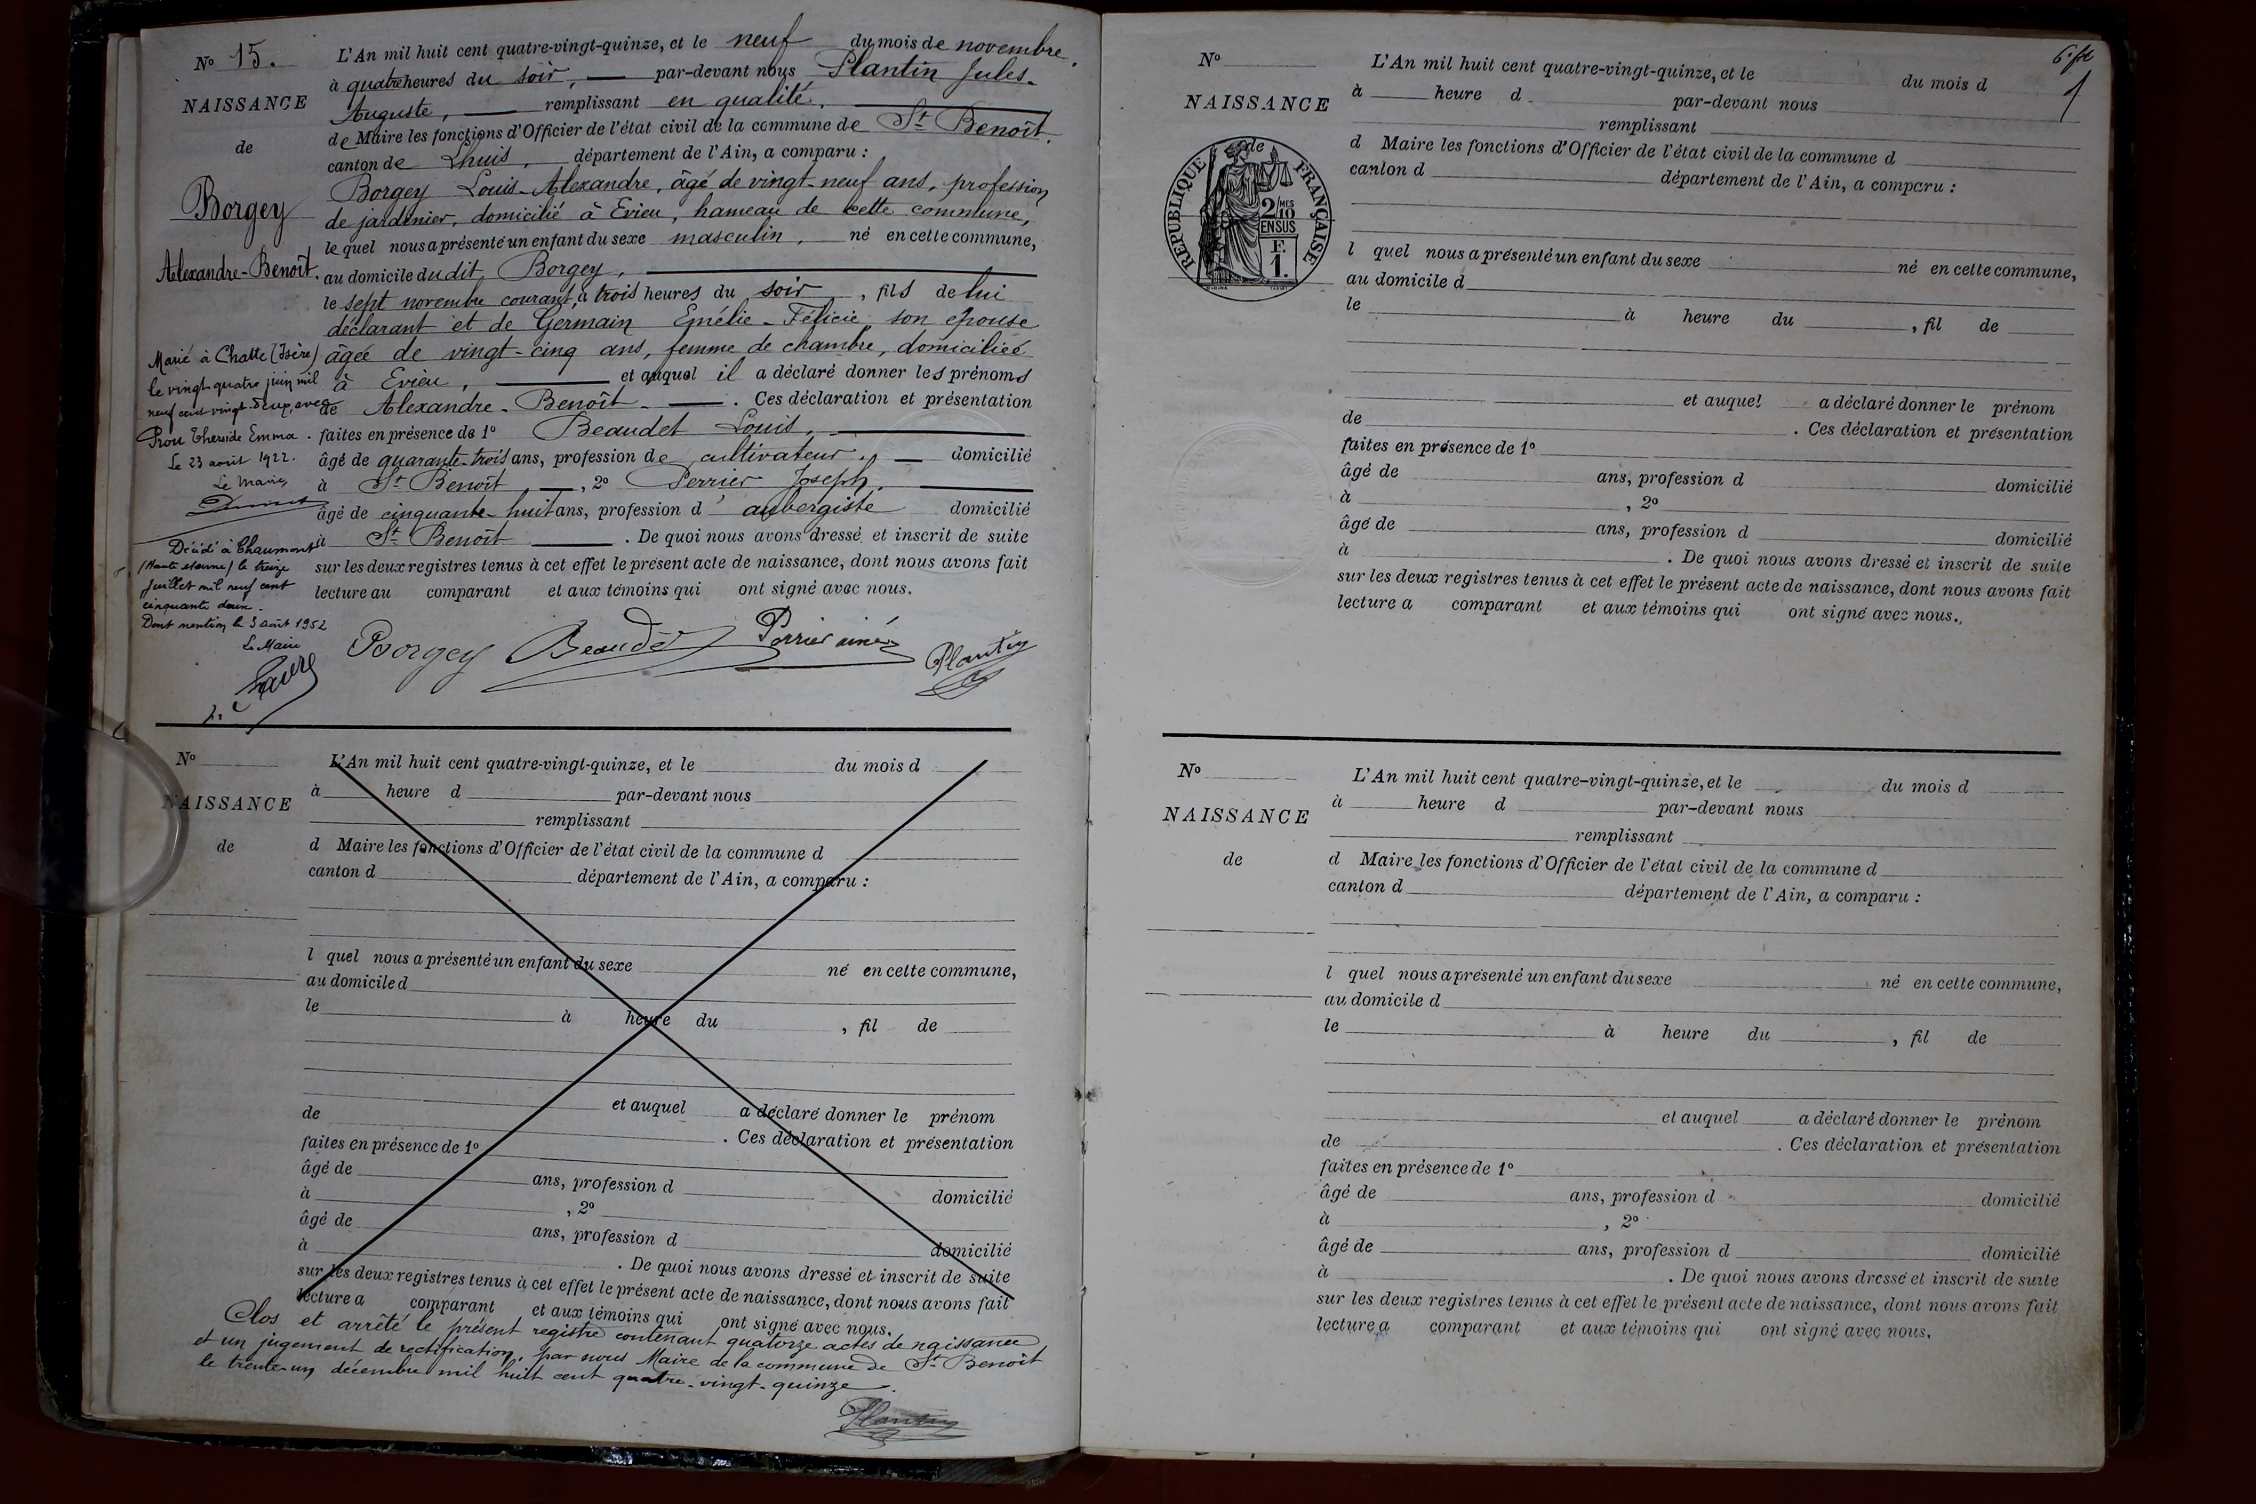 N° 15.
NAISSANCE
de
Borgey
Alexandre-Benoît.
L'An mil huit cent quatre-vingt-quinze, et le neuf du mois de novembre,
à quatre heures du soir, par-devant nous Plantin Jules-
Auguste, remplissant en qualité,
de Maire les fonctions d'Officier de l'état civil de la commune de St Benoît,
canton de Lhuis, département de l'Ain, a comparu :
Borgey Louis-Alexandre, âgé de vingt-neuf ans, profession
de jardinier, domicilié à Evieu, hameau de cette commune,
lequel nous a présenté un enfant du sexe masculin, né en cette commune,
au domicile dudit Borgey,
le sept novembre courant, à trois heures du soir, fils de lui
déclarant et de Germain Emélie-Félicie son épouse
âgée de vingt-cinq ans, femme de chambre, domiciliée
à Evieu, et auquel il a déclaré donner les prénoms
de Alexandre-Benoît. Ces déclaration et présentation
faites en présence de 1° Beaudet Louis,
âgé de quarante-trois ans, profession de cultivateur, domicilié
à St Benoît, 2° Perrier Joseph,
âgé de cinquante-huit ans, profession d'aubergiste domicilié
à St Benoît. De quoi nous avons dressé et inscrit de suite
sur les deux registres tenus à cet effet le présent acte de naissance, dont nous avons fait
lecture au comparant et aux témoins qui ont signé avec nous.
Marié à Chatte (Isère)
le vingt-quatre juin mil
neuf cent vingt-deux, avec
Prou Emma.
Le 23 août 1922.
Le Maire,
Décédé à Chaumont
(Haute Marne) le treize
Juillet mil neuf cent
cinquante deux.
Dont mention le 3 août 1952
Le Maire
Borgey Beaudet Perrier ainé Plantin
N°
NAISSANCE
de
L'An mil huit cent quatre-vingt-quinze, et le du mois d
à heure d par-devant nous
remplissant
d Maire les fonctions d'Officier de l'état civil de la commune d
canton d département de l'Ain, a comparu :
l quel nous a présenté un enfant du sexe né en cette commune,
au domicile d
le à heure du , fil de
et auquel a déclaré donner le prénom
de . Ces déclaration et présentation
faites en présence de 1°
âgé de ans, profession d domicilié
à , 2°
âgé de ans, profession d domicilié
à . De quoi nous avons dressé et inscrit de suite
sur les deux registres tenus à cet effet le présent acte de naissance, dont nous avons fait
lecture a comparant et aux témoins qui ont signé avec nous.
Clos et arrêté le présent registre contenant quatorze actes de naissance
et un jugement de rectification, par nous Maire de la commune de St Benoît
le trente-un décembre mil huit cent quatre-vingt-quinze.
Plantin
N°
NAISSANCE
de
RÉPUBLIQUE FRANÇAISE
2/10 MES
EN SUS
F.
1.
L'An mil huit cent quatre-vingt-quinze, et le du mois d
à heure d par-devant nous
remplissant
d Maire les fonctions d'Officier de l'état civil de la commune d
canton d département de l'Ain, a comparu :
l quel nous a présenté un enfant du sexe né en cette commune,
au domicile d
le à heure du , fil de
et auquel a déclaré donner le prénom
de . Ces déclaration et présentation
faites en présence de 1°
âgé de ans, profession d domicilié
à , 2°
âgé de ans, profession d domicilié
à . De quoi nous avons dressé et inscrit de suite
sur les deux registres tenus à cet effet le présent acte de naissance, dont nous avons fait
lecture a comparant et aux témoins qui ont signé avec nous.
N°
NAISSANCE
de
L'An mil huit cent quatre-vingt-quinze, et le du mois d
à heure d par-devant nous
remplissant
d Maire les fonctions d'Officier de l'état civil de la commune d
canton d département de l'Ain, a comparu :
l quel nous a présenté un enfant du sexe né en cette commune,
au domicile d
le à heure du , fil de
et auquel a déclaré donner le prénom
de . Ces déclaration et présentation
faites en présence de 1°
âgé de ans, profession d domicilié
à , 2°
âgé de ans, profession d domicilié
à . De quoi nous avons dressé et inscrit de suite
sur les deux registres tenus à cet effet le présent acte de naissance, dont nous avons fait
lecture a comparant et aux témoins qui ont signé avec nous.